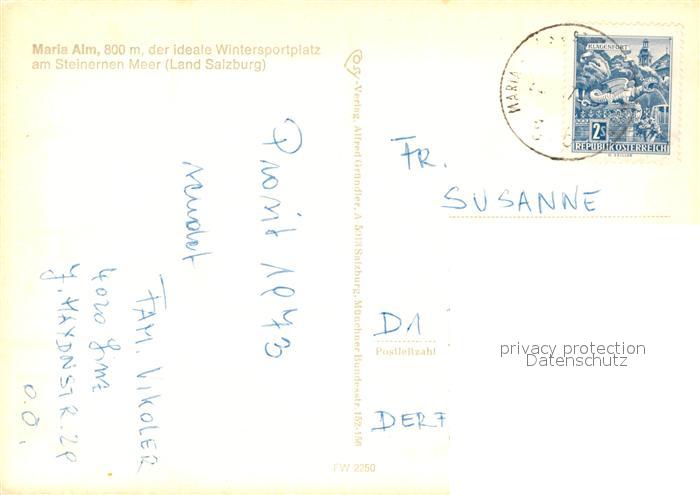 Maria Alm, 800 m, der ideale Wintersportplatz
am Steinernen Meer (Land Salzburg)
Prosit 1973
sendet
FAM. VIKOLER
4020 Linz
J. HAYDNSTR. 28
O.Ö.
Cosy-Verlag, Alfred Gründler, A 5013 Salzburg, Münchner Bundesstr. 152-156
MARIA
KLAGENFURT
2s
REPUBLIK ÖSTERREICH
FR.
SUSANNE
D1
Postleitzahl
privacy protection
Datenschutz
DERF
FW 2250